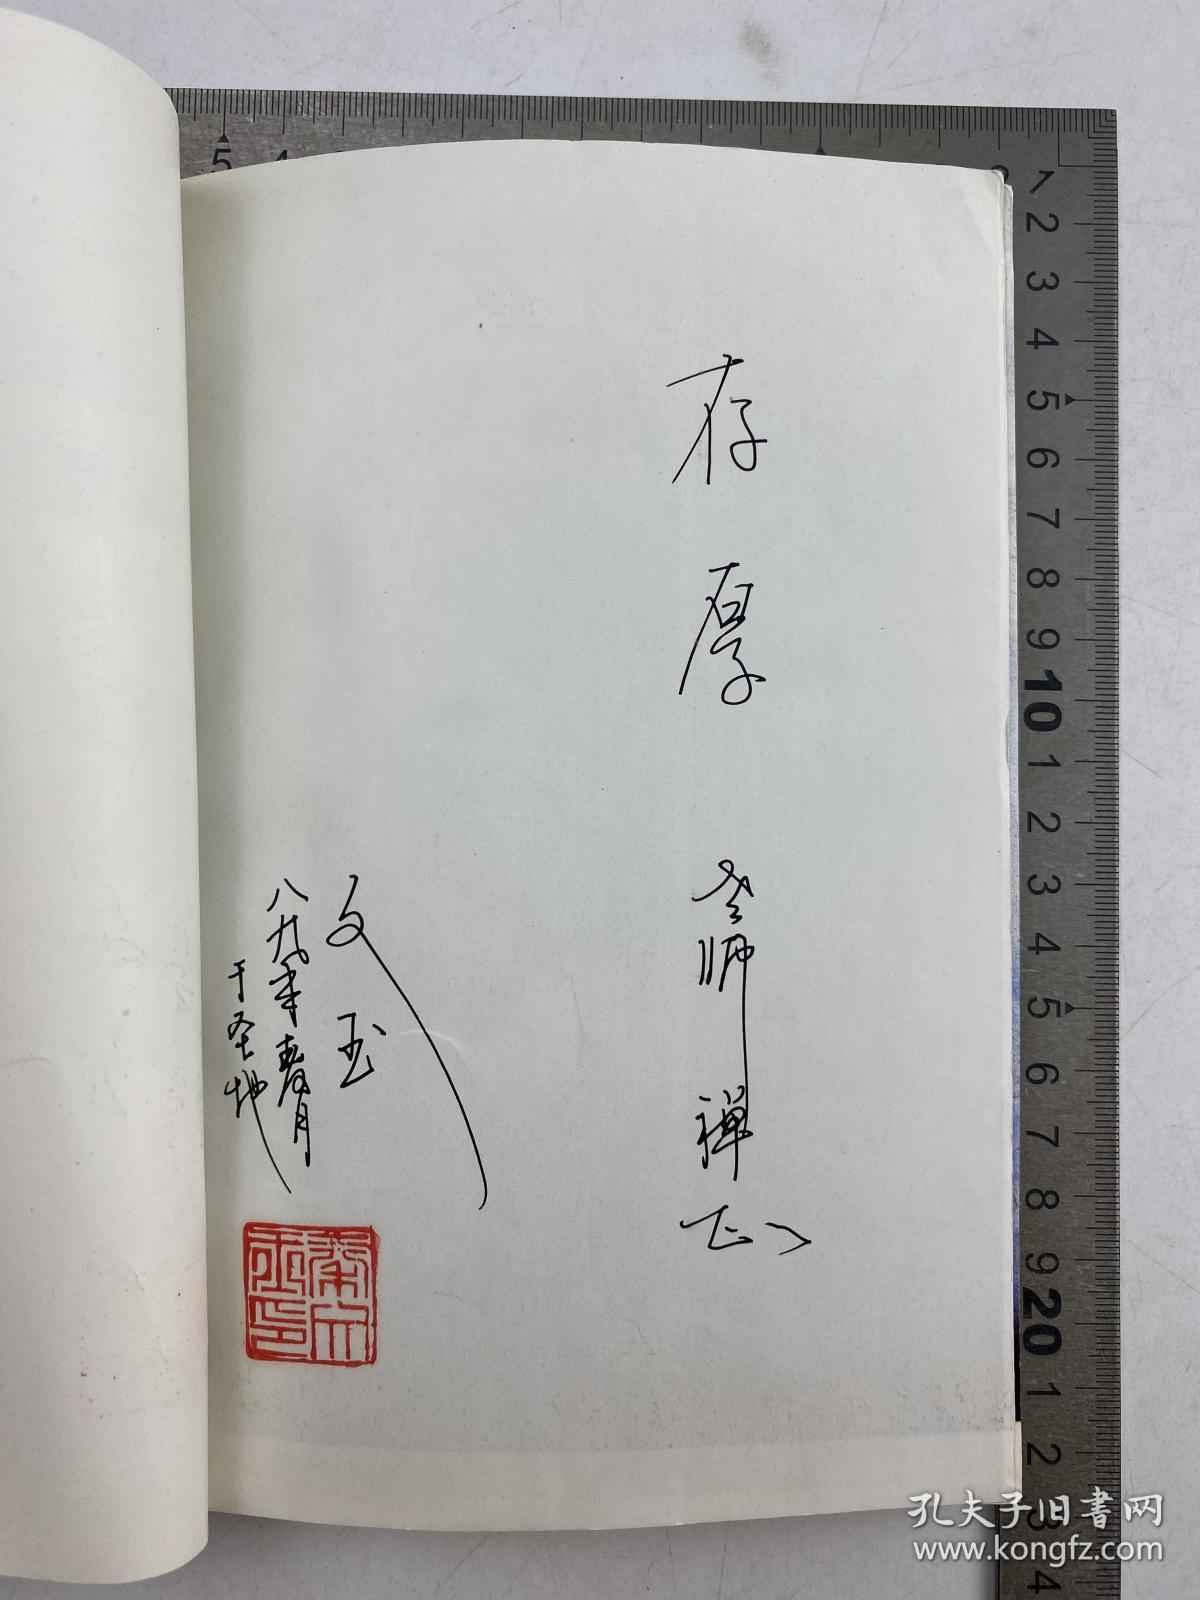 存厚老师禅正
文玉
八九年春月
于圣地
孔夫子旧書网
www.kongfz.com
5 4
1
2
3
4
5
6
7
8
9
10
1
2
3
4
5
6
7
8
9
20
1
2
3
4